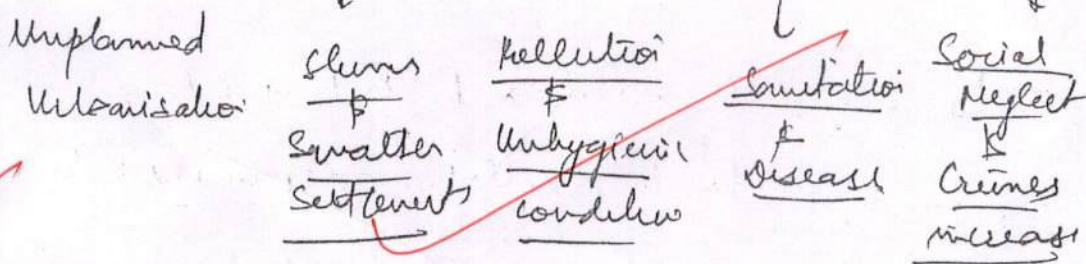 Unplanned
Urbanisation
Slums
&
Squatter
Settlements
Pollution
&
Unhygienic
condition
Sanitation
&
Disease
Social
Neglect
&
Crimes
increase